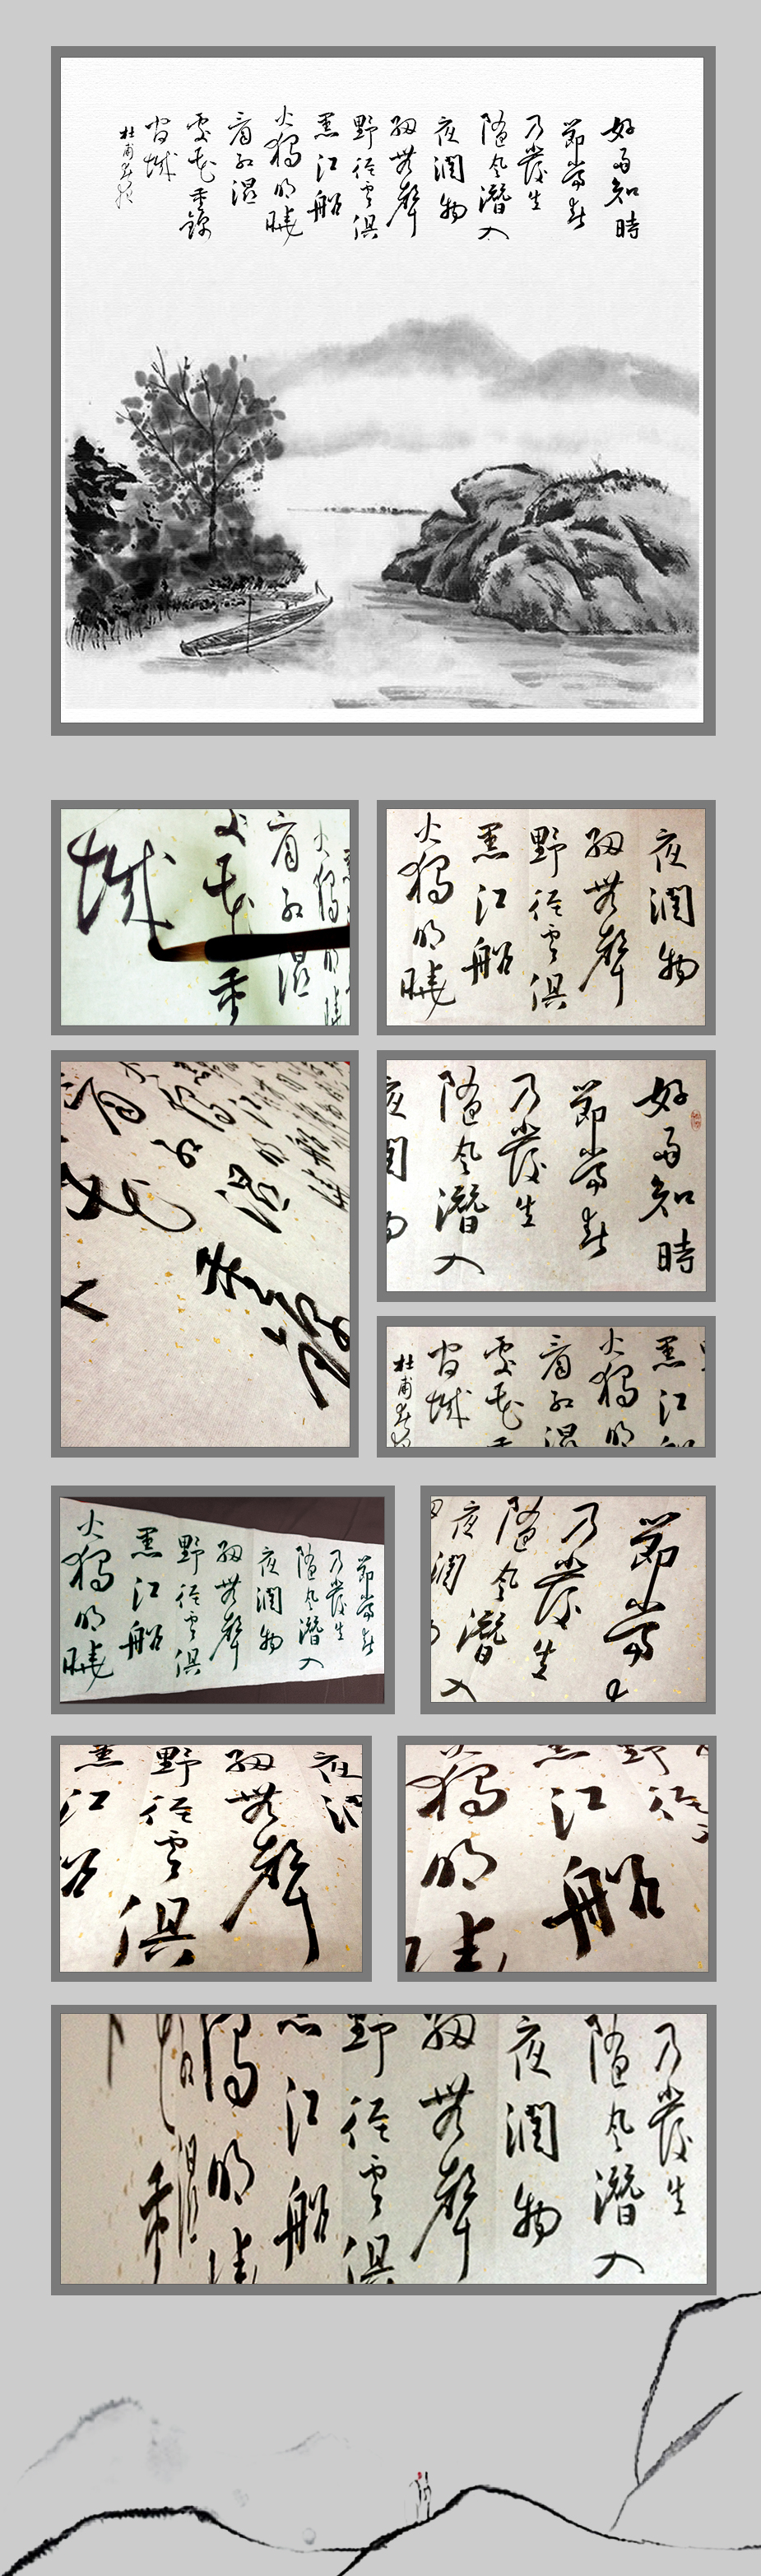 好雨知時
節當春
乃發生
隨風潛入
夜潤物
細無聲
野徑雲俱
黑江船
火獨明曉
看紅濕
處花重錦
官城
杜甫春
火獨明曉
看紅濕
花重
城
夜潤物
細無聲
野徑雲俱
黑江船
火獨明曉
看紅濕
花重錦
好雨知時
節當春
乃發生
隨風潛入
夜潤物
黑江船
火獨明
看紅濕
處花重
官城
杜甫春
節當春
乃發生
隨風潛入
夜潤物
細無聲
野徑雲俱
黑江船
火獨明曉
節當
乃發生
隨風潛入
夜潤物
夜潤
細無聲
野徑雲俱
黑江船
野徑
黑江船
獨明曉
乃發生
隨風潛入
夜潤物
細無聲
野徑雲俱
黑江船
獨明曉
濕
重